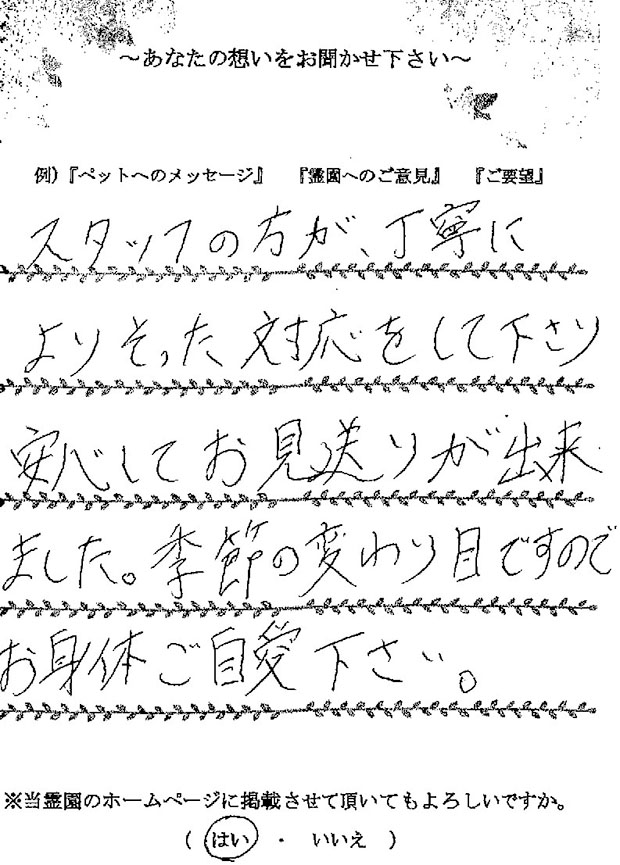 ～あなたの想いをお聞かせ下さい～
例)『ペットへのメッセージ』　『霊園へのご意見』　『ご要望』
スタッフの方が、丁寧に
よりそった対応をして下さり
安心してお見送りが出来
ました。季節の変わり目ですので
お身体ご自愛下さい。
※当霊園のホームページに掲載させて頂いてもよろしいですか。
(　はい　・　いいえ　)